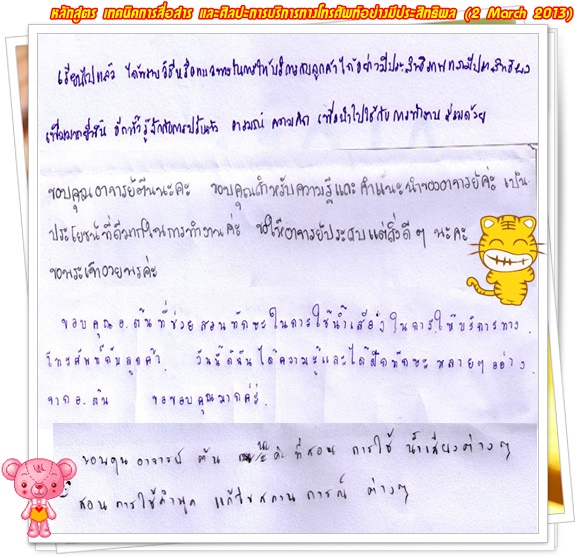 หลักสูตร เทคนิคการสื่อสาร และศิลปะการบริการทางโทรศัพท์อย่างมีประสิทธิพล (2 March 2013)
เรียนไปแล้ว ได้ทราบวิธีหรือแนวทางในการให้บริการกับลูกค้าได้อย่างมีประสิทธิภาพ
เพิ่มมากยิ่งขึ้น อีกทั้งรู้สึกกับการปรับตัว อารมณ์ ความคิด เพื่อนำไปใช้กับการทำงานร่วมด้วย
ขอบคุณอาจารย์ต้นนะคะ ขอบคุณสำหรับความรู้และคำแนะนำของอาจารย์ค่ะ เป็น
ประโยชน์ที่ดีมากในการทำงานค่ะ ขอให้อาจารย์ประสบแต่สิ่งดีๆ นะคะ
ขอพระเจ้าอวยพรค่ะ
ขอบคุณอ.ต้นที่ช่วยสอนทักษะในการใช้น้ำเสียงในการให้บริการทาง
โทรศัพท์กับลูกค้า วันนี้ดิฉันได้ความรู้และได้ฝึกทักษะหลายๆอย่าง
จากอ.ต้น ขอขอบคุณมากค่ะ
ขอบคุณ อาจารย์ ต้น นะค่ะ ที่สอน การใช้ น้ำเสียงต่างๆ
สอนการใช้คำพูด แก้ไขสถานการณ์ ต่างๆ